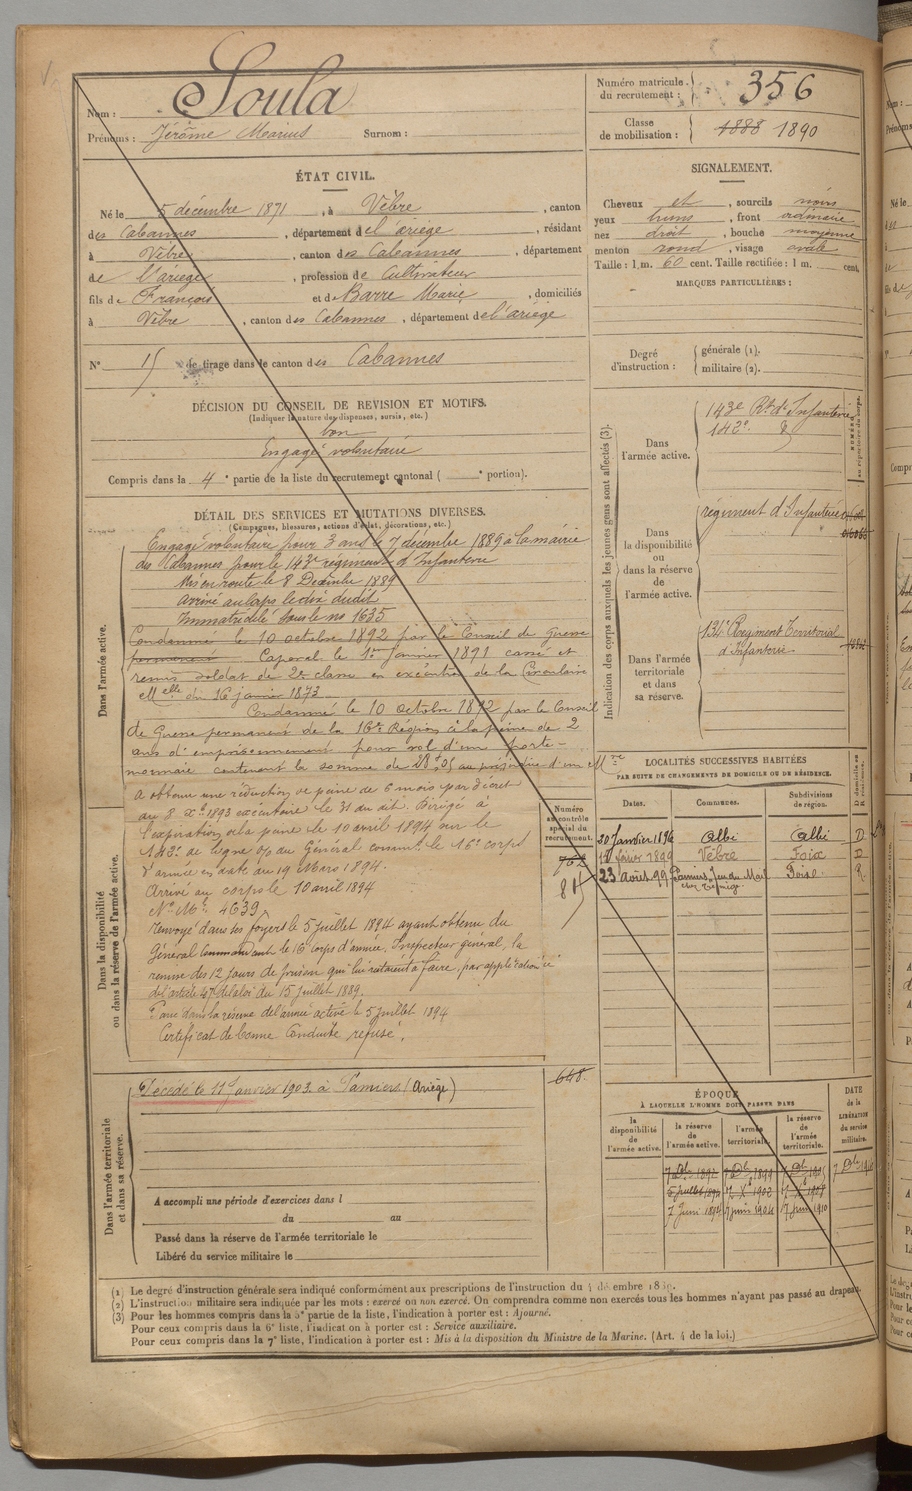 Nom : Soula
Prénoms : Jérôme Marius Surnom :
Numéro matricule du recrutement : 356
Classe de mobilisation : 1888 1890
ÉTAT CIVIL.
Né le 5 décembre 1871, à Vèbre, canton
des Cabannes, département de l'ariege, résidant
à Vèbre, canton des Cabannes, département
de l'ariege, profession de Cultivateur
fils de François et de Barre Marie, domiciliés
à Vèbre, canton des Cabannes, département de l'ariege
N° 15 de tirage dans le canton des Cabannes
SIGNALEMENT.
Cheveux et, sourcils noirs
yeux bruns, front ordinaire
nez droit, bouche moyenne
menton rond, visage ovale
Taille : 1 m. 60 cent. Taille rectifiée : 1 m. cent.
MARQUES PARTICULIÈRES :
Degré d'instruction : générale (1).
militaire (2).
DÉCISION DU CONSEIL DE REVISION ET MOTIFS.
(Indiquer la nature des dispenses, sursis, etc.)
bon
Engagé volontaire
Compris dans la 4e partie de la liste du recrutement cantonal ( e portion).
DÉTAIL DES SERVICES ET MUTATIONS DIVERSES.
(Campagnes, blessures, actions d'éclat, décorations, etc.)
Dans l'armée active.
Engagé volontaire pour 3 ans le 7 décembre 1889 à la mairie
des Cabannes pour le 143e régiment d'Infanterie
Mis en route le 8 Decembre 1889
arrivé au corps le dix dudit
Immatriculé sous le no 1635
Condamné le 10 octobre 1892 par le Conseil de Guerre
permanent Caporal le 1er Janvier 1891 cassé et
remis soldat de 2e classe en exécution de la Circulaire
Melle du 16 janvier 1873
Condamné le 10 Octobre 1892 par le Conseil
de Guerre permanent de la 16e Région à la peine de 2
ans d'emprisonnement pour vol d'un porte-
monnaie contenant la somme de 28f,05 au préjudice d'un Mre
Dans la disponibilité ou dans la réserve de l'armée active.
a obtenu une réduction de peine de 6 mois par décret
du 8 Xbre 1893 exécutoire le 31 du dit. Dirigé à
l'expiration de la peine le 10 avril 1894 sur le
142e de ligne o/o du Général command. le 16e corps
d'armée en date du 19 Mars 1894.
Arrivé au corps le 10 avril 1894
No Mle 4639
Renvoyé dans ses foyers le 5 juillet 1894 ayant obtenu du
Général Commandant le 16e corps d'armée, Inspecteur général, la
remise des 12 jours de prison qui lui restaient à faire, par application
de l'article 47 de la loi du 15 juillet 1889.
Passé dans la réserve de l'armée active le 5 juillet 1894
Certificat de bonne Conduite refusé.
Numéro au contrôle spécial du recrutement.
762
815
648.
Dans l'armée territoriale et dans sa réserve.
Décédé le 11 Janvier 1903. à Pamiers (Ariège)
A accompli une période d'exercices dans l
du au
Passé dans la réserve de l'armée territoriale le
Libéré du service militaire le
Indication des corps auxquels les jeunes gens sont affectés (3).
NUMÉRO au répertoire du corps.
Dans l'armée active.
143e Rt d'Infanterie
142e d
Dans la disponibilité ou dans la réserve de l'armée active.
régiment d'Infanterie
Dans l'armée territoriale et dans sa réserve.
134e Régiment Territorial
d'Infanterie
LOCALITÉS SUCCESSIVES HABITÉES
PAR SUITE DE CHANGEMENTS DE DOMICILE OU DE RÉSIDENCE.
Dates. Communes. Subdivisions de région. D domicile ou R résidence.
30 Janvier 1896 Albi Albi D
12 février 1899 Vèbre Foix D
23 août 99 Pamiers, Jeu du Mail Foix R
ÉPOQUE
À LAQUELLE L'HOMME DOIT PASSER DANS
la disponibilité de l'armée active.
la réserve de l'armée active.
l'armée territoriale.
la réserve de l'armée territoriale.
DATE de la LIBÉRATION du service militaire.
7 Xbre 1892 7 Xbre 1899
5 juillet 1894
7 Juin 1894 7 juin 1904 7 juin 1910
(1) Le degré d'instruction générale sera indiqué conformément aux prescriptions de l'instruction du 4 décembre 1889.
(2) L'instruction militaire sera indiquée par les mots : exercé ou non exercé. On comprendra comme non exercés tous les hommes n'ayant pas passé au drapeau.
(3) Pour les hommes compris dans la 5e partie de la liste, l'indication à porter est : Ajourné.
Pour ceux compris dans la 6e liste, l'indication à porter est : Service auxiliaire.
Pour ceux compris dans la 7e liste, l'indication à porter est : Mis à la disposition du Ministre de la Marine. (Art. 4 de la loi.)